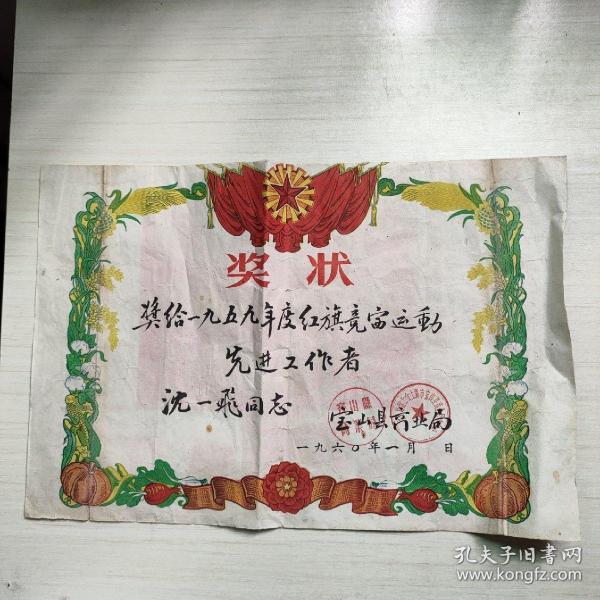 奖状
奬给一九五九年度红旗竞赛运動
先进工作者
沈一飛同志
宝山县商业局
一九六〇年一月 日
孔夫子旧书网
www.kongfz.com